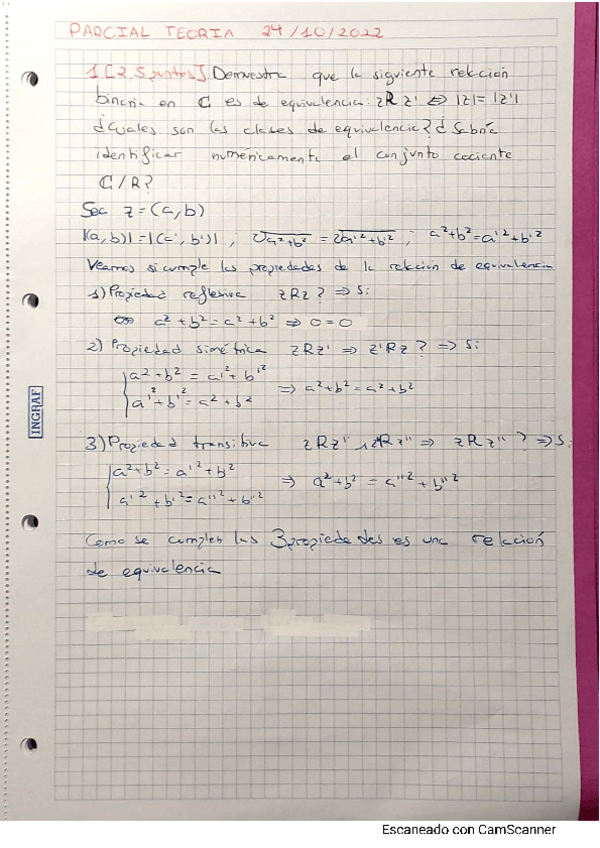 PARCIAL TEORIA 24/10/2022
1 [2,5 puntos] Demuestra que la siguiente relación
binaria en ℂ es de equivalencia: zRz' ⇔ |z|=|z'|
¿Cuales son las clases de equivalencia? ¿Sabría
identificar numéricamente el conjunto cociente
ℂ/R?
Sea z=(a,b)
|(a,b)|=|(a',b')| ; √a²+b² = √a'²+b'² ; a²+b²=a'²+b'²
Veamos si cumple las propiedades de la relación de equivalencia
1) Propiedad reflexiva zRz? ⇒ Si
a²+b²=a²+b² ⇒ 0=0
2) Propiedad simétrica zRz' ⇒ z'Rz? ⇒ Si
a²+b² = a'²+b'²
⇒ a²+b²=a²+b²
a'²+b'²=a²+b²
INGRAF
3) Propiedad transitiva zRz' ∧ z'Rz'' ⇒ zRz''? ⇒ Si
a²+b²=a'²+b'²
⇒ a²+b²=a''²+b''²
a'²+b'²=a''²+b''²
Como se cumplen las 3 propiedades es una relación
de equivalencia
Escaneado con CamScanner